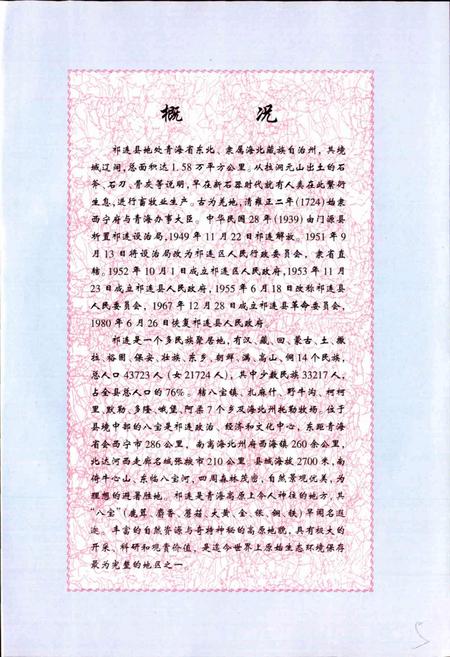 概 况
祁连县地处青海省东北、隶属海北藏族自治州，其境
域辽阔，总面积达1.58万平方公里。从拉洞元山出土的石
斧、石刀、骨灰等说明，早在新石器时代就有人类在此繁衍
生息，进行畜牧业生产。古为羌地，清雍正二年(1724)始隶
西宁府与青海办事大臣。中华民国28年(1939)由门源县
析置祁连设治局，1949年11月22日祁连解放。1951年9
月13日将设治局改为祁连区人民行政委员会，隶省直
辖。1952年10月1日成立祁连区人民政府，1953年11月
23日成立祁连县人民政府，1955年6月18日改称祁连县
人民委员会，1967年12月28日成立祁连县革命委员会，
1980年6月26日恢复祁连县人民政府。
祁连是一个多民族聚居地，有汉、藏、回、蒙古、土、撒
拉、裕固、保安、壮族、东乡、朝鲜、满、高山、侗14个民族，
总人口43723人(女21724人)，其中少数民族33217人，
占全县总人口的76%。辖八宝镇、扎麻什、野牛沟、柯柯
里、默勒、多隆、峨堡、阿柔7个乡及海北州托勒牧场。位于
县境中部的八宝是祁连政治、经济和文化中心，东距青海
省会西宁市286公里，南离海北州府西海镇260余公里，
北达河西走廊名城张掖市210公里。县城海拔2700米，南
倚牛心山，东临八宝河，四周森林茂密，自然景观优美，为
理想的避暑胜地。祁连是青海高原上令人神往的地方，其
“八宝”(鹿茸、麝香、蘑菇、大黄、金、银、铜、铁)早闻名遐
迩。丰富的自然资源与奇特神秘的高原地貌，具有极大的
开采、科研和观赏价值，是迄今世界上原始生态环境保存
最为完整的地区之一。